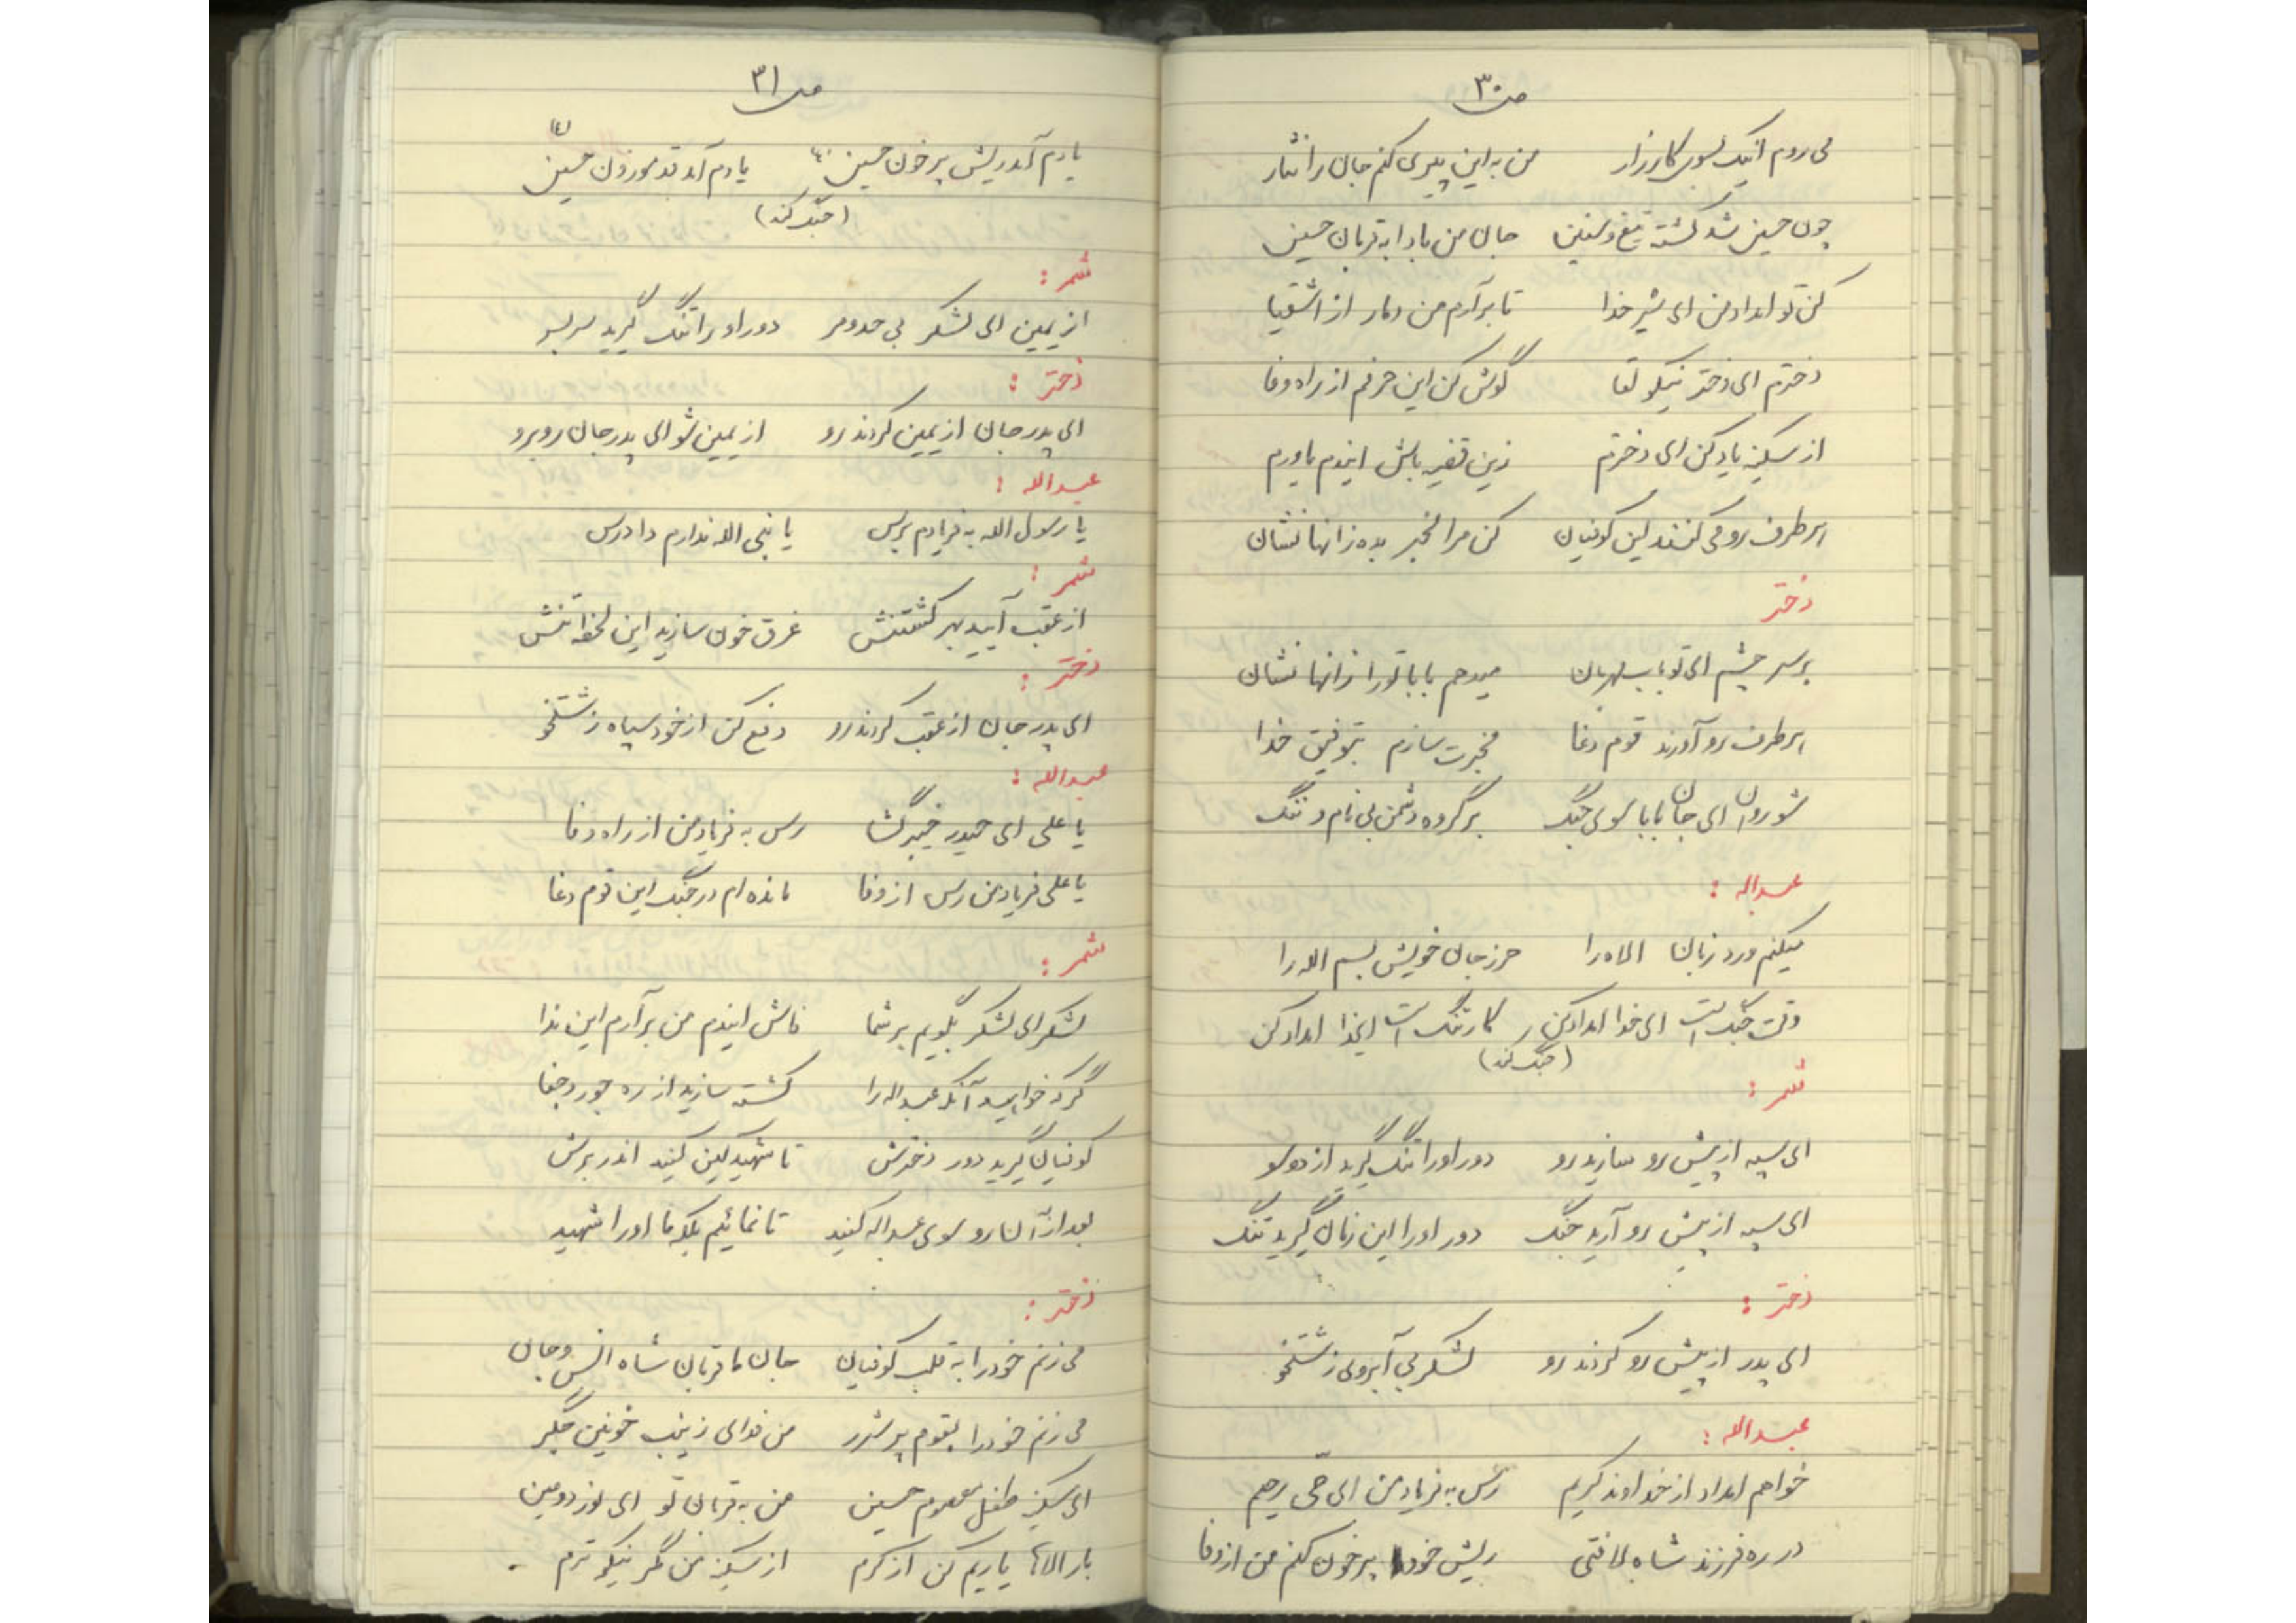 ص ۳۰
می روم اینک بسوی کارزار من به این پیری کنم جان را نثار
چون حسین شد کشته تیغ و سنین جان من بادا به قربان حسین
کن تو امداد من ای شیر خدا تا برآرم من دمار از اشقیا
دخترم ای دختر نیکو لقا گوش کن این حرفم از راه وفا
از سکینه یاد کن ای دخترم زین قضیه باش ایندم یاورم
هر طرف رو می کنند این کوفیان کن مرا مخبر بده زانها نشان
دختر
بر سر چشم ای تو باب مهربان میدهم بابا تو را زانها نشان
هر طرف رو آورند قوم دغا مخبرت سازم بتوفیق خدا
شو روان ای جان بابا سوی جنگ بر گروه دشمن بی نام و ننگ
عبداله :
میکنم ورد زبان الاه را حرز جان خویش بسم الله را
وقت جنگ است ای خدا امداد کن کار تنگ است ایخدا امداد کن
(جنگ کند)
شمر :
ای سپه از پیش رو سازید رو دور او را تنگ گیرید از دو سو
ای سپه از پیش رو آرید جنگ دور او را این زمان گیرید تنگ
دختر :
ای پدر از پیش رو کردند رو لشکر بی آبروی زشتخو
عبدالله :
خواهم امداد از خداوند کریم رس به فریاد من ای حی رحیم
در ره فرزند شاه لافتی ریش خود را پر خون کنم من از وفا
ص ۳۱
یادم آمد ریش پر خون حسین ع یادم آمد قد موزون حسین (ع)
(جنگ کند)
شمر :
از یمین ای لشکر بی حد و مر دور او را تنگ گیرید سر بسر
دختر :
ای پدر جان از یمین کردند رو از یمین شو ای پدر جان روبرو
عبدالله :
یا رسول الله به فریادم برس یا نبی الله ندارم دادرس
شمر :
از عقب آیید بهر کشتنش غرق خون سازید این لحظه تنش
دختر :
ای پدر جان از عقب کردند رو دفع کن از خود سپاه زشتخو
عبدالله :
یا علی ای حیدر خیبر گشا رس به فریاد من از راه وفا
یا علی فریاد من رس از وفا مانده ام در جنگ این قوم دغا
شمر :
لشکر ای لشکر بگویم بر شما فاش ایندم من برآرم این ندا
گر که خواهید آنکه عبداله را کشته سازید از ره جور و جفا
کوفیان گیرید دور دخترش تا شهید کین کنید اندر برش
بعد از آن رو سوی عبداله کنید تا نمائیم بلکه ما او را شهید
دختر :
می زنم خود را به قلب کوفیان جان ما قربان شاه انس و جان
می زنم خود را بقوم پر شرر من فدای زینب خونین جگر
ای سکینه طفل معصوم حسین من به قربان تو ای نور دو عین
بار الاها یاریم کن از کرم از سکینه من مگر نیکوترم